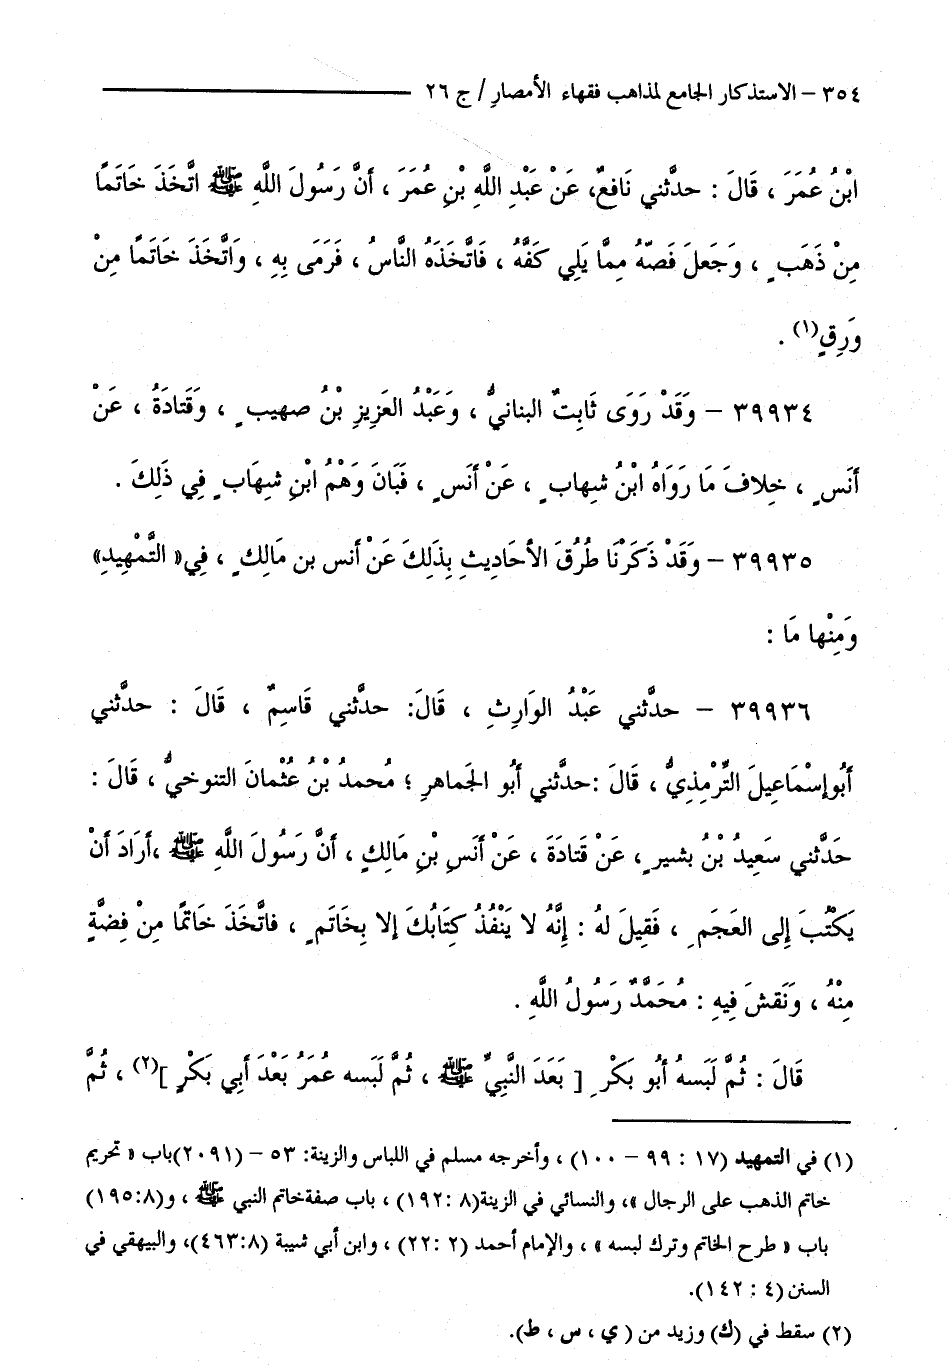 ٣٥٤ – الاستذكار الجامع لمذاهب فقهاء الأمصار / ج ٢٦
ابْنُ عُمَرَ ، قَالَ : حدَّثني نَافِعٌ، عَنْ عَبْدِ اللَّهِ بْنِ عُمَرَ ، أَنَّ رَسُولَ اللَّهِ ﷺ اتَّخَذَ خَاتَمًا
مِنْ ذَهَبٍ ، وَجَعلَ فَصّهُ مِمَّا يَلِي كَفَّهُ ، فَاتَّخَذَهُ النَّاسُ ، فَرَمَى بِهِ ، وَاتَّخَذَ خَاتَمًا مِنْ
وَرِقٍ(١) .
٣٩٩٣٤ – وَقَدْ رَوَى ثَابِتٌ البنانيُّ ، وَعَبْدُ العَزِيزِ بْنُ صهيبٍ ، وقَتادَةُ ، عَنْ
أَنَسٍ ، خِلافَ مَا رَوَاهُ ابْنُ شيهابٍ ، عَنْ أَنَسٍ ، فَبَانَ وَهْمُ ابْنِ شيهَابٍ فِي ذَلِكَ .
٣٩٩٣٥ – وَقَدْ ذَكَرْنَا طُرُقَ الأحَادِيثِ بِذَلِكَ عَنْ أنس بن مَالِكٍ ، فِي« التَّمْهِيدِ»
وَمِنْها مَا :
٣٩٩٣٦ – حدَّثني عَبْدُ الوَارِثِ ، قَالَ: حدَّثني قَاسِمٌ ، قَالَ : حدَّثني
أَبُو إسْمَاعِيلَ التِّرْمِذِيُّ ، قَالَ :حدَّثني أبُو الجَماهرِ ؛ مُحمدُ بْنُ عُثْمانَ التنوخيُّ ، قَالَ :
حَدَّثني سَعِيدُ بْنُ بشيرٍ ، عَنْ قَتادَةَ ، عَنْ أَنَسِ بْنِ مَالِكٍ ، أَنَّ رَسُولَ اللَّهِ ﷺ ،أرَادَ أنْ
يَكْتُبَ إِلى العَجَمِ ، فَقِيلَ لهُ : إِنَّهُ لا يَنْفُذُ كِتَابُكَ إلا بِخَاتَمٍ ، فاتَّخَذَ خَاتمًا مِنْ فِضَّةٍ
مِنْهُ ، وَنَقشَ فِيهِ : مُحَمَّدٌ رَسُولُ اللَّهِ .
قَالَ : ثُمَّ لَبَسهُ أبُو بَكْرِ [ بَعَدَ النَّبِيِّ ﷺ ، ثُمَّ لَبَسه عُمَرُ بَعْدَ أبِي بَكْرٍ ](٢) ، ثُمَّ
(١) في التمهيد (١٧ : ٩٩ – ١٠٠) ، وأخرجه مسلم في اللباس والزينة: ٥٣ – (٢٠٩١)باب « تحريم
خاتم الذهب على الرجال »، والنسائي في الزينة(٨ :١٩٢) ، باب صفةخاتم النبي ﷺ ، و(١٩٥:٨)
باب « طرح الخاتم وترك لبسه » ، والإمام أحمد (٢ :٢٢) ، وابن أبي شيبة (٤٦٣:٨)، والبيهقي في
السنن (٤ : ١٤٢).
(٢) سقط في (ك) وزيد من ( ي ، س ، ط).